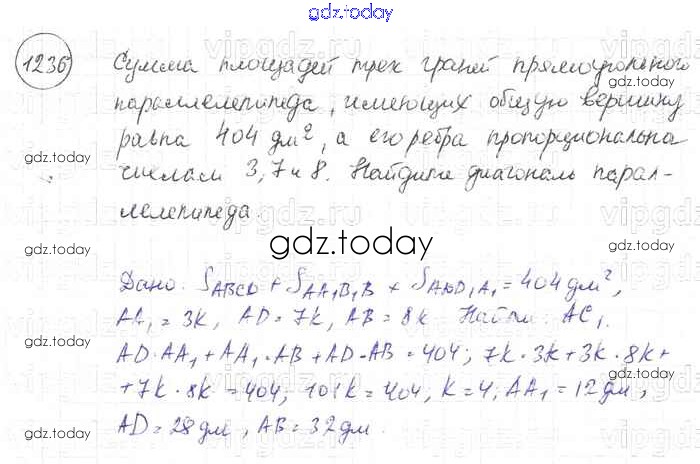 gdz.today
1236 Сумма площадей трех граней прямоугольного
параллелепипеда, имеющих общую вершину
равна 404 дм², а его ребра пропорциональна
числам 3, 7 и 8. Найдите диагональ парал-
лелепипеда.
gdz.today
gdz.today
gdz.today
gdz.today
gdz.today
gdz.today
Дано: S_ABCD + S_AA₁B₁B + S_ADD₁A₁ = 404 дм²,
AA₁ = 3k, AD = 7k, AB = 8k Найти: AC₁.
AD·AA₁ + AA₁·AB + AD·AB = 404; 7k·3k + 3k·8k +
+ 7k·8k = 404; 101k = 404, k = 4; AA₁ = 12 дм,
AD = 28 дм, AB = 32 дм.
gdz.today
gdz.today
gdz.today
gdz.today